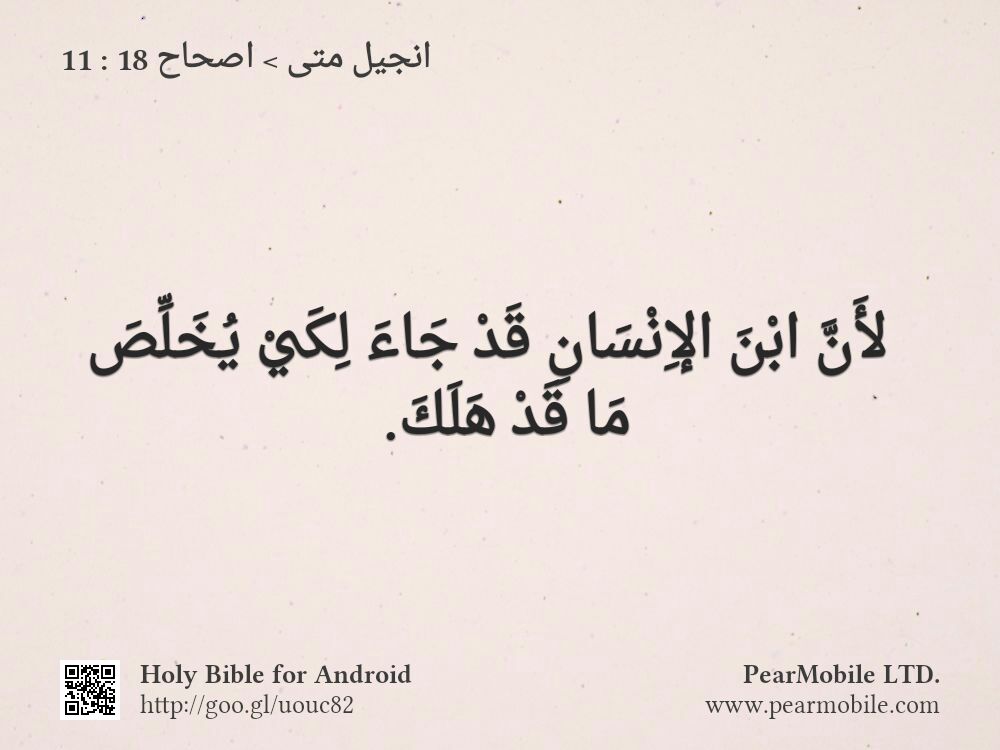 انجيل متى > اصحاح 18 : 11
لأَنَّ ابْنَ الإِنْسَانِ قَدْ جَاءَ لِكَيْ يُخَلِّصَ
مَا قَدْ هَلَكَ.
Holy Bible for Android
http://goo.gl/uouc82
PearMobile LTD.
www.pearmobile.com